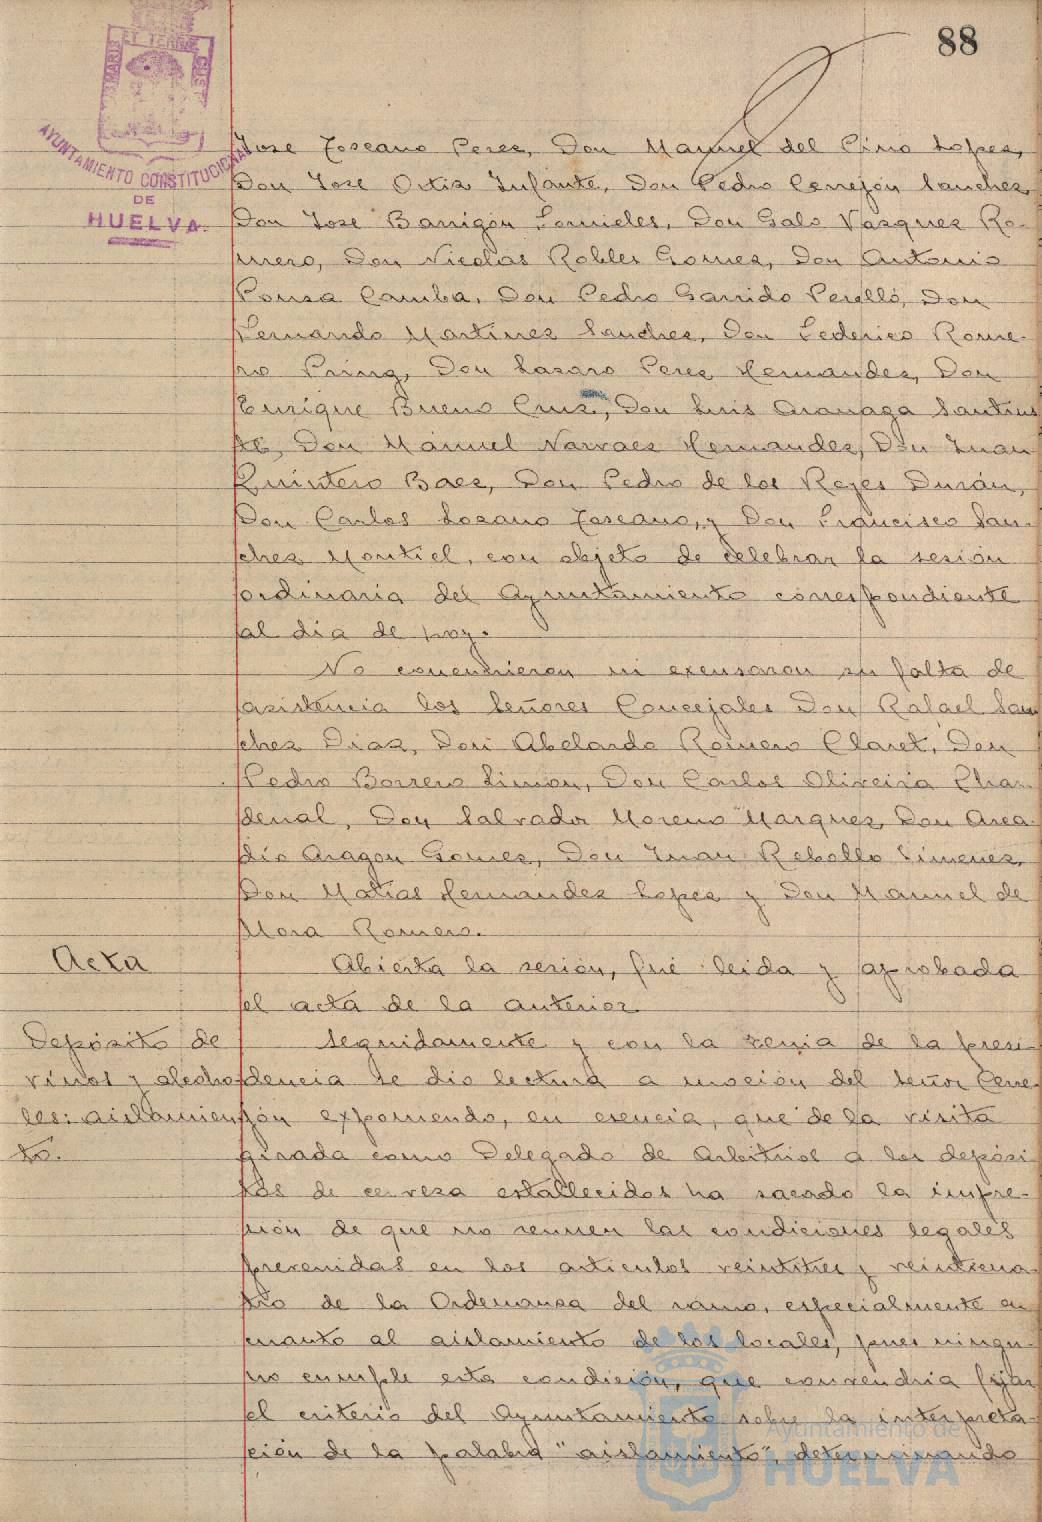 88
ET TERRAE
MARIS
CUST
AYUNTAMIENTO CONSTITUCIONAL
DE
HUELVA.
Jose Toscano Perez, Don Manuel del Pino Lopez,
Don Jose Ortiz Infante, Don Pedro Cerrejón Sanchez
Don Jose Barrigón Fornieles, Don Galo Vazquez Ro-
mero, Don Nicolas Robles Gomez, Don Antonio
Pousa Camba, Don Pedro Garrido Perelló, Don
Fernando Martinez Sanchez, Don Federico Rome-
ro Pring, Don Lazaro Perez Hernandez, Don
Enrique Bueno Cruz, Don Luis Aranaga Santius
te, Don Manuel Narvaez Hernandez, Don Juan
Quintero Baez, Don Pedro de los Reyes Durán,
Don Carlos Lozano Toscano, y Don Francisco San-
chez Montiel, con objeto de celebrar la sesión
ordinaria del Ayuntamiento correspondiente
al dia de hoy.
No concurrieron ni excusaron su falta de
asistencia los Señores Concejales Don Rafael San
chez Diaz, Don Abelardo Romero Claret, Don
Pedro Borrero Limon, Don Carlos Oliveira Char-
denal, Don Salvador Moreno Marquez, Don Arca-
dio Aragon Gomez, Don Juan Rebollo Jimenez,
Don Matias Hernandez Lopez y Don Manuel de
Mora Romero.
Acta
Abierta la sesión, fué leida y aprobada
el acta de la anterior
Depósito de
vinos y alcoho-
les: aislamien
to.
Seguidamente y con la venia de la presi-
dencia se dio lectura a moción del Señor Cerre-
jón exponiendo, en esencia, que de la visita
girada como Delegado de Arbitrios a los depósi
tos de cerveza establecidos ha sacado la impre-
sión de que no reunen las condiciones legales
prevenidas en los articulos veintitres y veinticua-
tro de la Ordenanza del ramo, especialmente en
cuanto al aislamiento de los locales, pues ningu-
no cumple esta condición, que convendria fijar
el criterio del Ayuntamiento sobre la interpreta-
ción de la palabra "aislamiento", determinando
Ayuntamiento de
HUELVA